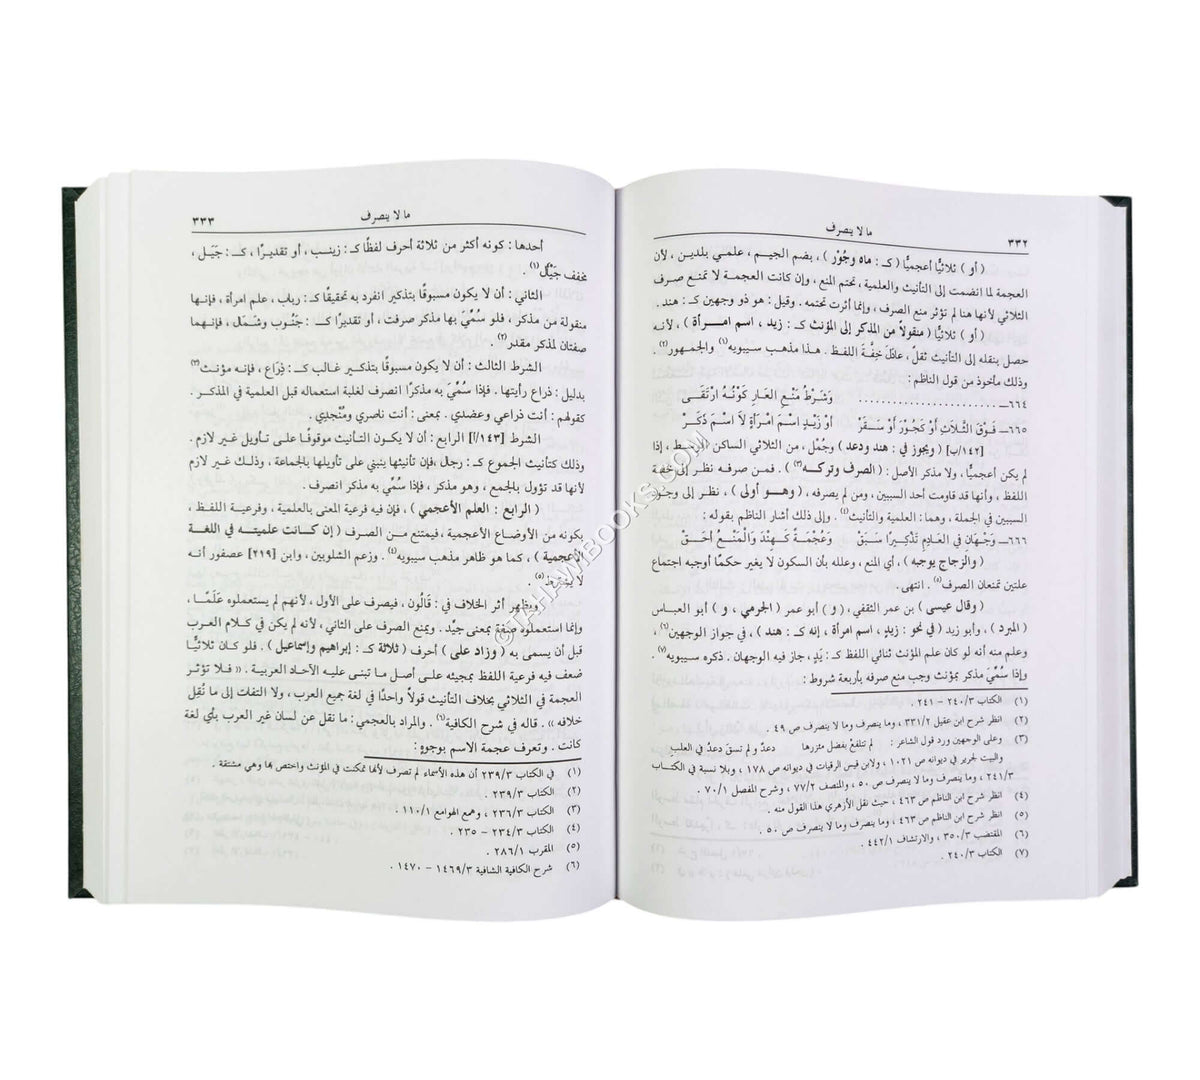 ما لا ينصرف
٣٣٢
( أو ) ثلاثيًّا أعجميًّا ( كـ : ماه وجُوْر ) ، بضم الجيم ، علمي بلدين ، لأن
العجمة لما انضمت إلى التأنيث والعلمية ، تحتم المنع ، وإن كانت العجمة لا تمنع صرف
الثلاثي لأنها هنا لم تؤثر منع الصرف ، وإنما أثرت تحتمه . وقيل : هو ذو وجهين كـ : هند .
( أو ) ثلاثيًّا ( منقولاً من المذكر إلى المؤنث كـ : زيد ، اسم امـرأة ) ، لأنـه
حصل بنقله إلى التأنيث ثقلٌ ، عادَلَ خِفَّةَ اللفظ . هذا مذهب سيبويه(١) والجمهور(٢) .
وذلك مأخوذ من قول الناظم :
٦٦٤ــ . . . . . . . . . . . . . . . . . . . . وَشَرْطُ مَنْعِ العَارِ كَوْنُـهُ ارْتَقَـى
٦٦٥ــ فَوْقَ الثَّلاَثِ أَوْ كَجُوْرَ أَوْ سَـقَرْ أَوْ زَيْدٍ اسْمَ امْرَأَةٍ لاَ اسْـمَ ذَكَـرْ
[١٤٢/ب] ( ويجوز في : هند ودعد ) وجُمْل ، من الثلاثي الساكن الوسط ، إذا
لم يكن أعجميًّا ، ولا مذكر الأصل : ( الصرف وتركـه(٣) ) . فمـن صرفـه نظـر إلى خفـة
اللفظ ، وأنها قد قاومت أحد السببين ، ومن لم يصرفه ، ( وهـو أولى ) ، نظـر إلى وجـود
السببين في الجملة ، وهما : العلمية والتأنيث(٤) . وإلى ذلك أشار الناظم بقوله :
٦٦٦ــ وَجْهَان في العَادِمِ تَذْكِيرًا سَـبَقْ وَعُجْمَةً كَـهِنْدَ وَالْمَنْـعُ أَحَـقْ
( والزجاج يوجبه ) ، أي المنع ، وعلله بأن السكون لا يغير حكمًا أوجبه اجتماع
علتين تمنعان الصرف(٥) . انتهى .
( وقال عيسى ) بن عمر الثقفي ، ( و ) أبو عمر ( الجرمي ، و ) أبو العباس
( المبرد ) ، وأبو زيد ( في نحو : زيد ، اسم امرأة ، إنه كـ : هند ) ، في جواز الوجهين(٦) ،
وعلم منه أنه لو كان علم المؤنث ثنائي اللفظ كـ : يَدٍ ، جاز فيه الوجهان . ذكره سيبويه(٧) .
وإذا سُمِّيَ مذكر بمؤنث وجب منع صرفه بأربعة شروط :
(١) الكتاب ٢٤٠/٣ – ٢٤١ .
(٢) انظر شرح ابن عقيل ٣٣١/٢ ، وما ينصرف وما لا ينصرف ص ٤٩ .
(٣) وعلى الوجهين ورد قول الشاعر : لم تتلفعْ بفضل مئزرها دعدٌ و لم تسقَ دعدُ في العلب
والبيت لجرير في ديوانه ص ١٠٢١ ، ولابن قيس الرقيات في ديوانه ص ١٧٨ ، وبلا نسبة في الكتـاب
٢٤١/٣ ، وما ينصرف وما لا ينصرف ص ٥٠ ، والمنصف ٧٧/٢ ، وشرح المفصل ٧٠/١ .
(٤) انظر شرح ابن الناظم ص ٤٦٣ ، حيث نقل الأزهري هذا القول منه .
(٥) شرح ابن الناظم ص ٤٦٣ ، وما ينصرف وما لا ينصرف ص ٥٠ .
(٦) المقتضب ٣٥٠/٣ ، والارتشاف ٤٤٢/١ .
(٧) الكتاب ٢٤٠/٣ .
ما لا ينصرف
٣٣٣
أحدها : كونه أكثر من ثلاثة أحرف لفظًا كـ : زينب ، أو تقديرًا ، كـ : جَيَـل ،
مخفف جَيْأَل(١) .
الثاني : أن لا يكون مسبوقًا بتذكير انفرد به تحقيقًا كـ : رباب ، علم امرأة ، فإنهـا
منقولة من مذكر ، فلو سُمِّيَ بها مذكر صرفت ، أو تقديرًا كـ : جَنُـوب وشَمَـال ، فإنهـما
صفتان لمذكر مقدر(٢) .
الشرط الثالث : أن لا يكون مسبوقًا بتذكـير غالب كـ : ذِرَاع ، فإنه مؤنـث(٣)
بدليل : ذراع رأيتها . فإذا سُمِّيَ به مذكرًا انصرف لغلبة استعماله قبل العلمية في المذكـر .
كقولهم : أنت ذراعي وعضدي . بمعنى : أنت ناصري ومُنْجدِي .
الشرط [١٤٣/أ] الرابع : أن لا يكون التأنيث موقوفًا علـى تـأويل غـير لازم .
وذلك كتأنيث الجموع كـ : رجال، فإن تأنيثها ينبني على تأويلها بالجماعة ، وذلك غير لازم
لأنها قد تؤول بالجمع ، وهو مذكر ، فإذا سُمِّي به مذكر انصرف .
( الرابع : العلم الأعجمي ) ، فإن فيه فرعية المعنى بالعلمية ، وفرعية اللفـظ ،
بكونه من الأوضاع الأعجمية ، فيمتنع من الصرف ( إن كـانت علميتـه في اللغـة
الأعجمية ) ، كما هو ظاهر مذهب سيبويه(٤) . وزعم الشلوبين ، وابن [٢١٩] عصفور أنـه
لا يشترط(٥) .
ويظهر أثر الخلاف في : قَالُون ، فيصرف على الأول ، لأنهم لم يستعملوه عَلَمًـا ،
وإنما استعملوه صفة بمعنى جيِّد . ويمنع الصرف على الثاني ، لأنه لم يكن في كـلام العرب
قبل أن يسمى به ( وزاد على ) أحرف ( ثلاثة كـ : إبراهيم وإسماعيل ) . فلـو كـان ثلاثيًّـا
ضعف فيه فرعية اللفظ بمجيئه علـى أصـل مـا تبنـى عليـه الآحـاد العربيـة . « فـلا تؤثـر
العجمة في الثلاثي بخلاف التأنيث قولاً واحدًا في لغة جميع العرب ، ولا التفات إلى ما نُقِل
خلافه » . قاله في شرح الكافية(٦) . والمراد بالعجمي : ما نقل عن لسان غير العرب بأي لغة
كانت . وتعرف عجمة الاسم بوجوهٍ :
(١) في الكتاب ٢٣٩/٣ أن هذه الأسماء لم تصرف لأنها تمكنت في المؤنث واختص بها وهي مشتقة .
(٢) الكتاب ٢٣٩/٣ .
(٣) الكتاب ٢٣٦/٣ ، وهمع الهوامع ١١٠/١ .
(٤) الكتاب ٢٣٤/٣ – ٢٣٥ .
(٥) المقرب ٢٨٦/١ .
(٦) شرح الكافية الشافية ١٤٦٩/٣ – ١٤٧٠ .
©TAHAWIBOOKS.COM